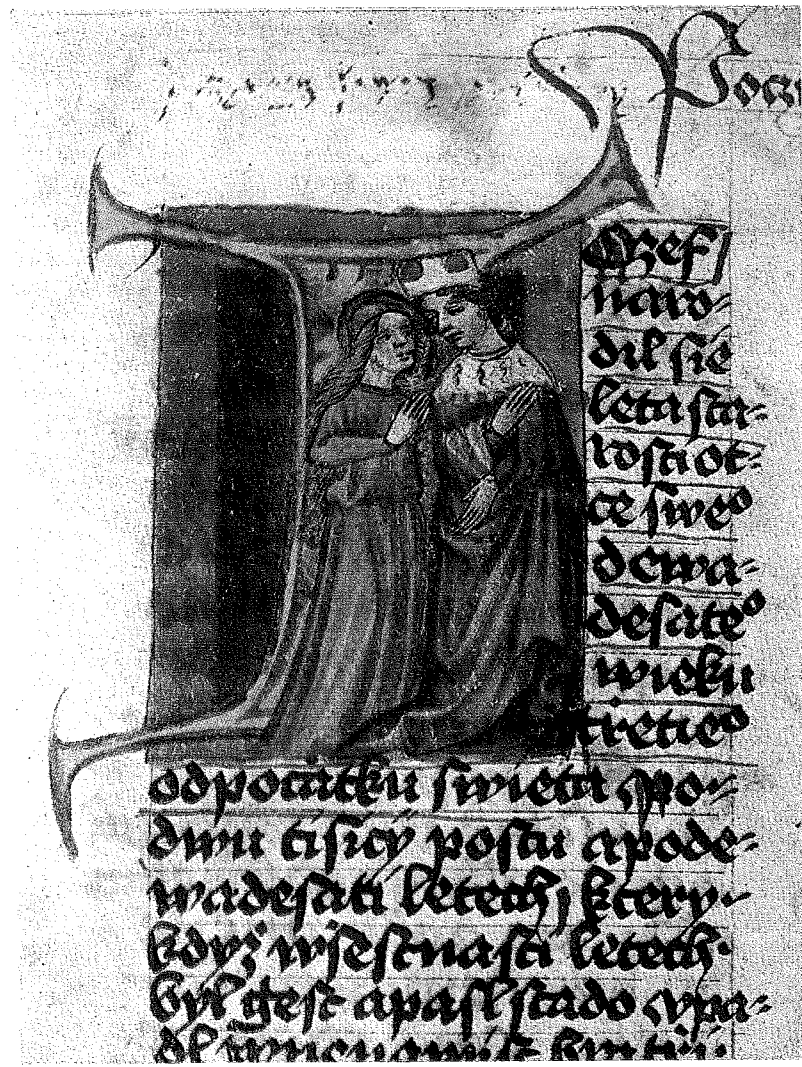 Pocz
Ozef
naro=
dil sie
leta sta=
rosti ot=
ce sweo
dewa=
desateo
wieku
tretieo
odpocatku swieta ypo=
dwu tisicy postu apode=
wadesati letech, ktery=
kdyz wsestnasti letech
byl gest apasl stado ypa=